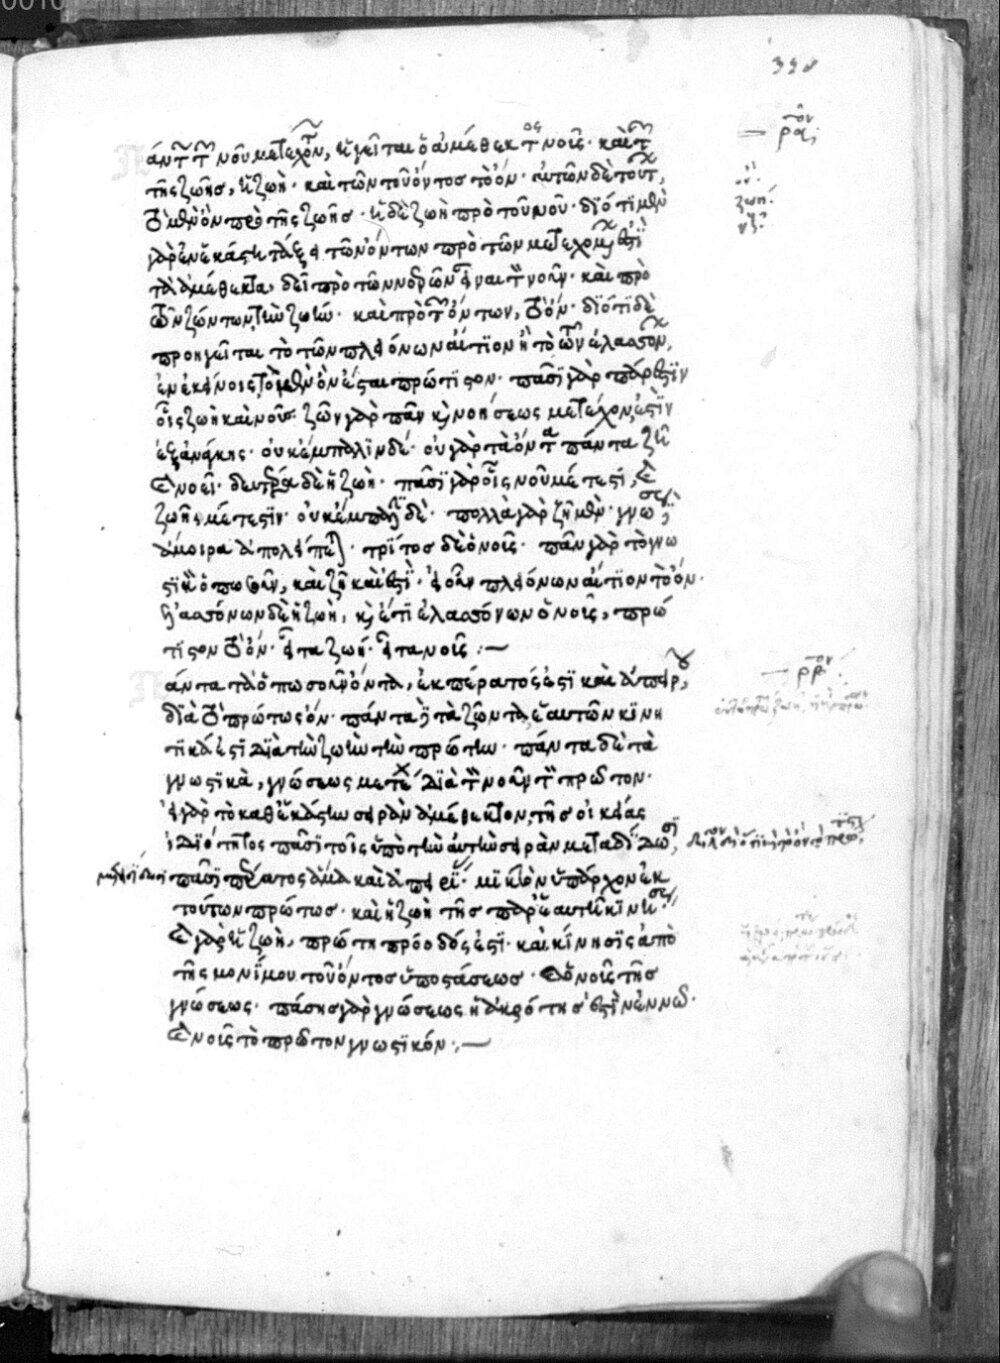 άντων τῶν νοῦ μετεχόντων, ἡγεῖται ὁ ἀμέθεκτος νοῦς· καὶ τῶν
τῆς ζωῆς, ἡ ζωὴ· καὶ τῶν τοῦ ὄντος τὸ ὄν· αὐτῶν δὲ τούτων,
τὸ μὲν ὂν πρὸ τῆς ζωῆς· ἡ δὲ ζωὴ πρὸ τοῦ νοῦ· διότι μὲν
γὰρ ἐν ἑκάστῃ τάξει τῶν ὄντων πρὸ τῶν μετεχομένων ἐστὶ
τὰ ἀμέθεκτα, δεῖ πρὸ τῶν νοερῶν εἶναι τὸν νοῦν· καὶ πρὸ
τῶν ζώντων, τὴν ζωήν· καὶ πρὸ τῶν ὄντων, τὸ ὄν· διότι δὲ
προηγεῖται τὸ τῶν πλειόνων αἴτιον ἢ τὸ τῶν ἐλασσόνων,
ἐν ἐκείνοις, τὸ μὲν ὂν ἔσται πρώτιστον· πᾶσι γὰρ πάρεστιν
οἷς ζωὴ καὶ νοῦς· ζῶν γὰρ πᾶν κὴ νοήσεως μετέχον, ἐστὶν
ἐξ ἀνάγκης· οὐκ έμπαλιν δέ· οὐ γὰρ τὰ ὄντα πάντα ζῆ
καὶ νοεῖ· δευτέρα δὲ ἡ ζωὴ· πᾶσι γὰρ οἷς νοῦ μέτεστι, καὶ
ζωῆς μέτεστιν· οὐκ έμπαλιν δὲ· πολλὰ γὰρ ζῆ μὲν· γνώσεως δὲ
ἄμοιρα ἀπολείπεται· τρίτος δὲ ὁ νοῦς· πᾶν γὰρ τὸ γνω
στικὸν ὁπωσοῦν, καὶ ζῆ καὶ ἐστὶ· εἰ οὖν πλειόνων αίτιον τὸ ὄν·
ἐλασσόνων δὲ ἡ ζωὴ, κὴ ἔτι ἐλασσόνων ὁ νοῦς, πρώ
τιστον τὸ ὄν· εἶτα ζωή· εἶτα νοῦς :—
άντα τὰ ὁπωσοῦν ὄντα, ἐκ πέρατός ἐστι καὶ ἀπείρου,
διὰ τὸ πρώτως ὄν· πάντα δὲ τὰ ζῶντα, ἑαυτῶν κινη
τικά ἐστι διὰ τὴν ζωὴν τὴν πρώτην· πάντα δὲ τὰ
γνωστικὰ, γνώσεως μετέχει διὰ τὸν νοῦν τὸν πρῶτον·
εἰ γὰρ τὸ καθ' ἑκάστην σειρὰν ἀμέθεκτον, τῆς οἰκείας
ἰδιότητος πᾶσι τοῖς ὑπὸ τὴν αὐτὴν σειρὰν μεταδίδωσι,
πᾶσι πέρατος ἅμα καὶ ἀπειρίας· μικτὸν ὑπάρχον ἐκ
τούτων πρώτως· καὶ ἡ ζωὴ τῆς παρ' ἑαυτῆ κινήσεως·
καὶ γὰρ ἡ ζωὴ, πρώτη πρόοδός ἐστι· καὶ κίνησις ἀπὸ
τῆς μονίμου τοῦ ὄντος ὑποστάσεως· καὶ ὁ νοῦς τῆς
γνώσεως· πάσης γὰρ γνώσεως ἡ ἀκρότης ἐστὶν ἐν νῶ·
καὶ νοῦς τὸ πρῶτον γνωστικόν :—
ρα ον
ὄν·
ζωή·
νοῦς·
ρβ ον